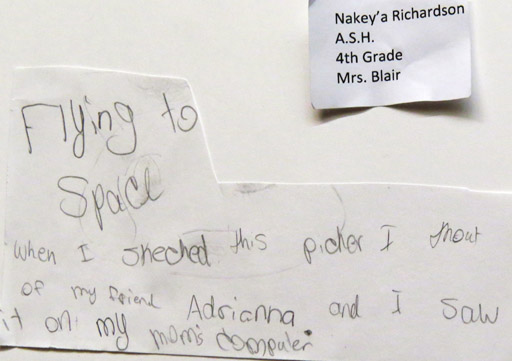 Nakey'a Richardson
A.S.H.
4th Grade
Mrs. Blair
Flying to
Space
when I skeched this picher I thout
of my friend Adrianna and I saw
it on my mom's computer